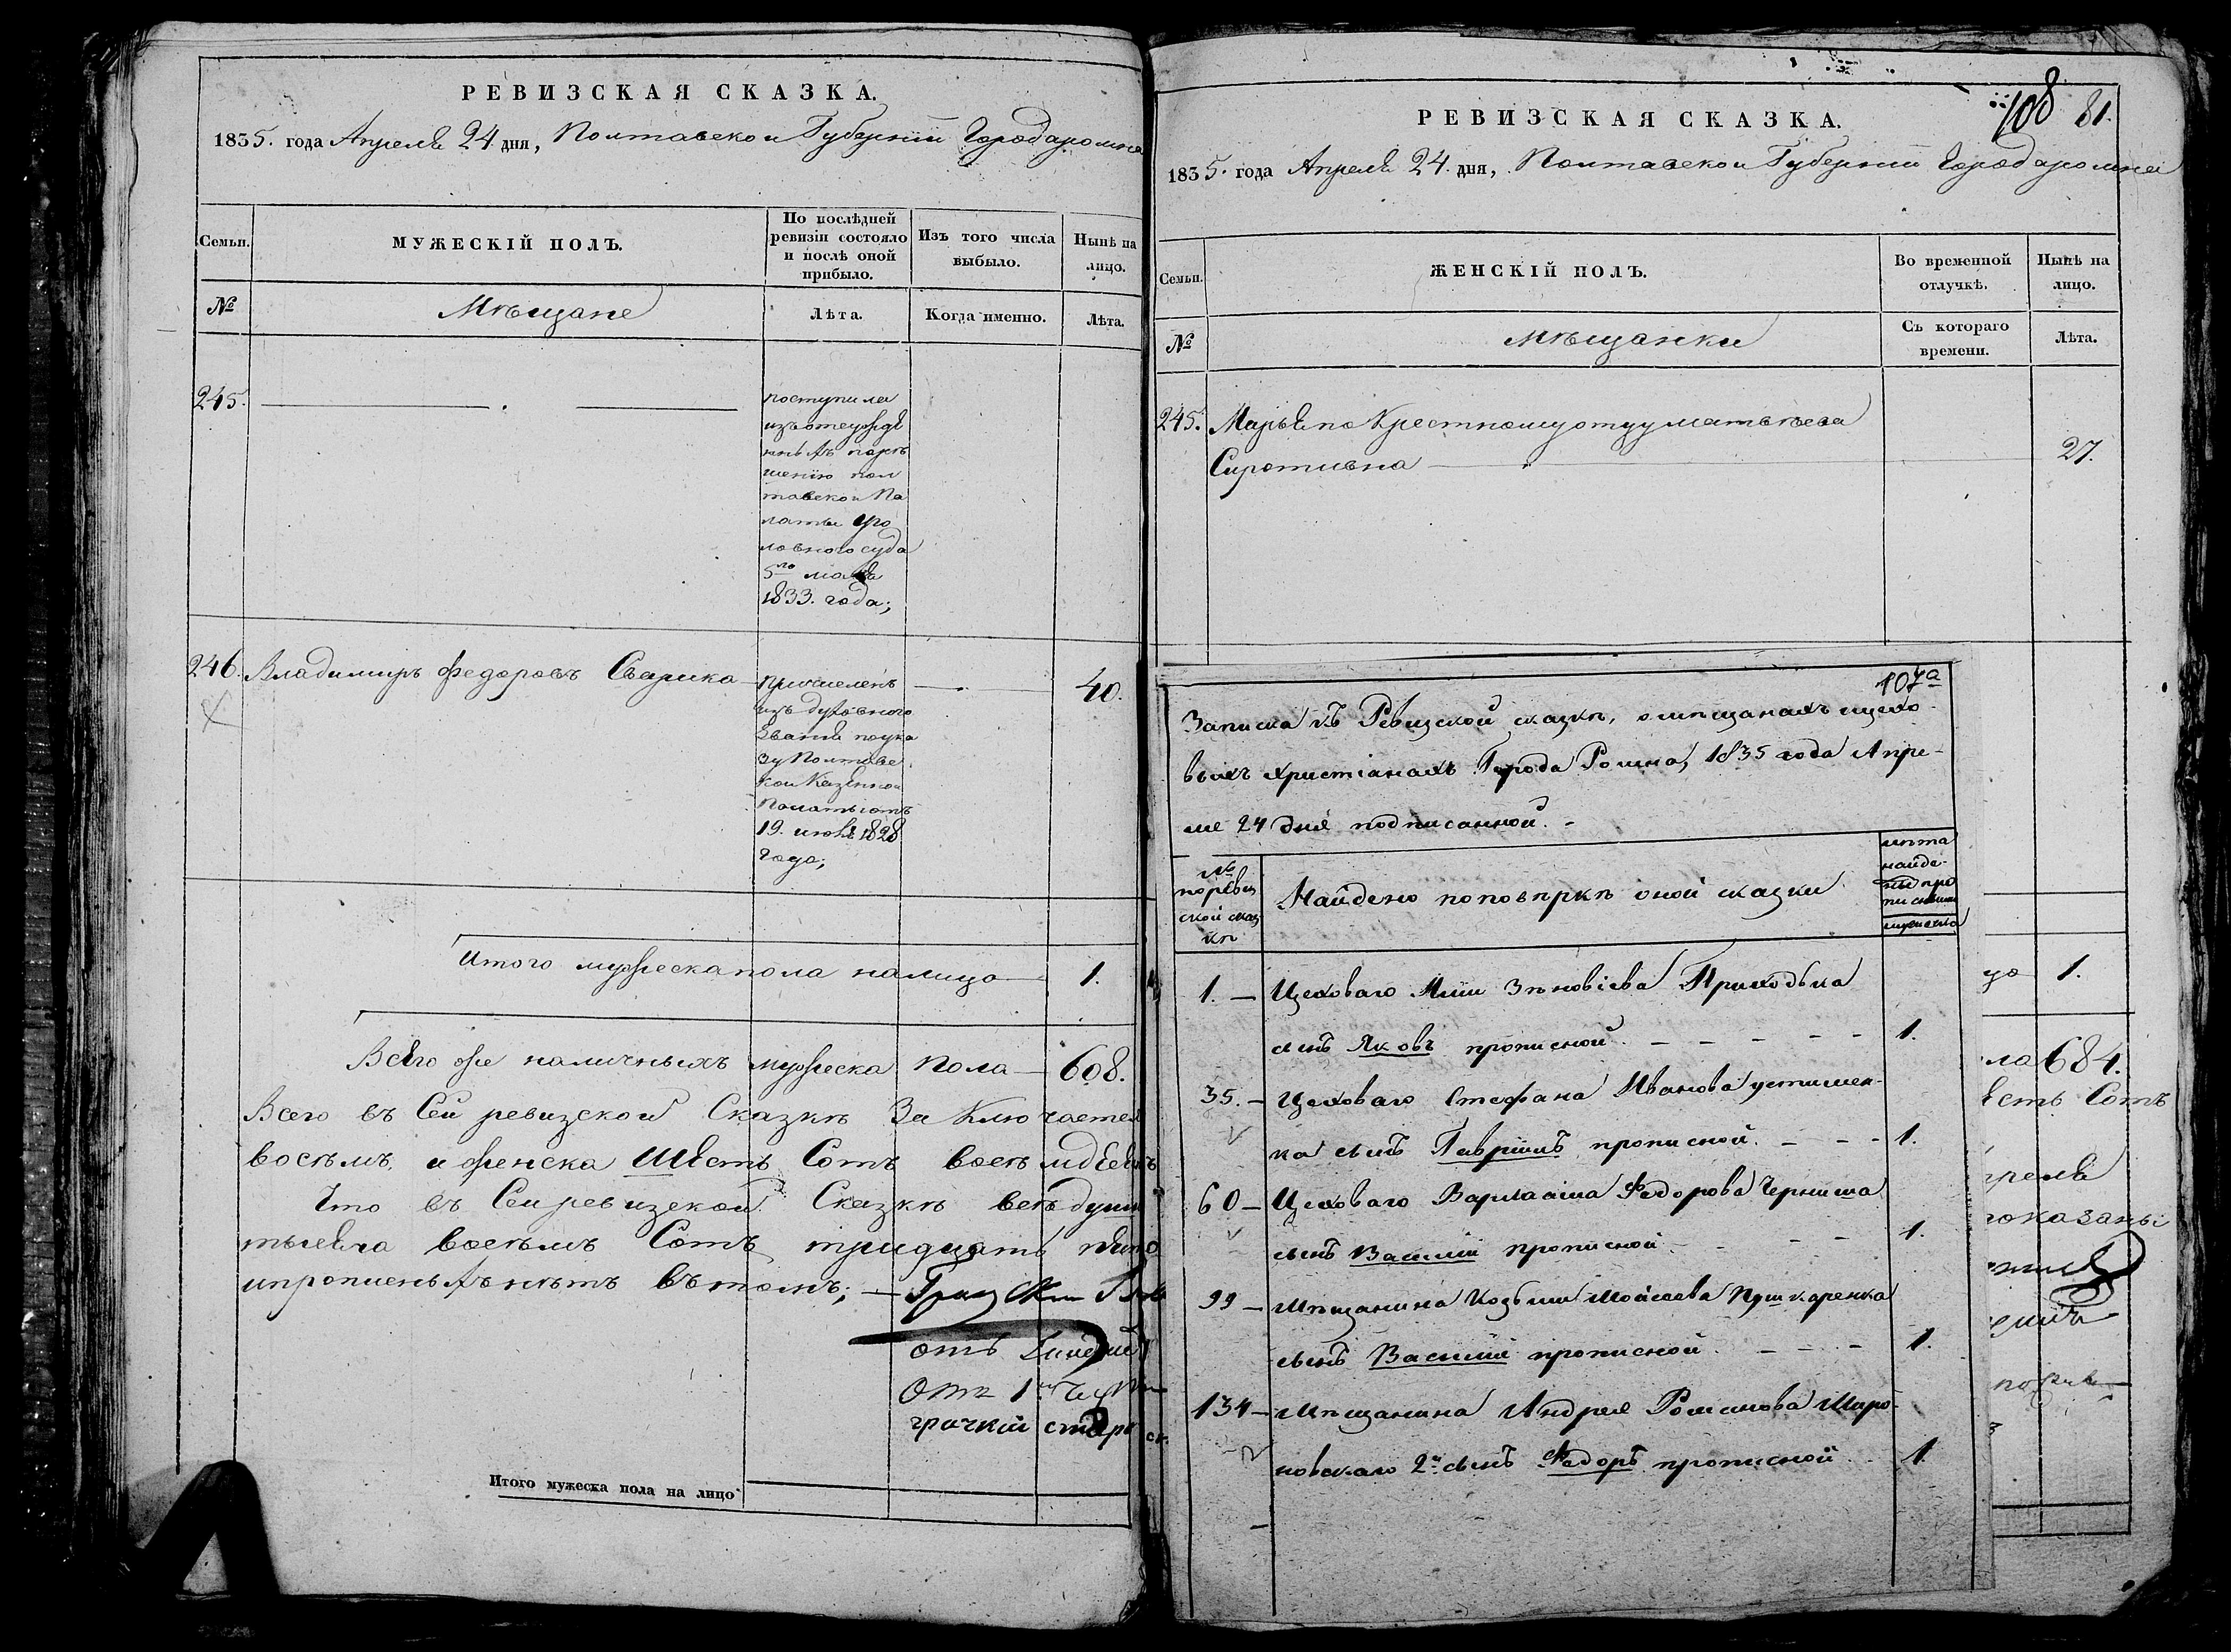 РЕВИЗСКАЯ СКАЗКА.
1835. года Апреля 24 дня, Полтавской Губернии Города ромна
Семьи.
МУЖЕСКІЙ ПОЛЪ.
По послѣдней ревизіи состояло и послѣ оной прибыло.
Изъ того числа выбыло.
Нынѣ на лицо.
№
Мѣщане
Лѣта.
Когда именно.
Лѣта.
245.
поступила
шенію пол
тавской Па
латы уго
ловного суда
5го
1833. года;
246. Владимиръ Федоровъ Сварика
причисленъ
изъ духовного
званія поука
зу Полтавс
кой Казенной
Полаты отъ
19. июля 1828
года;
40.
Итого мужеска пола налицо 1.
Всего же наличныхъ мужеска пола 608.
Всего въ Сей ревизской Сказкѣ Заключается
восемъ, и женска Шесть Сотъ восемдесят
Что въ Сей ревизской Сказкѣ всѣ души
тысяча восемъ Сотъ тридцать пято
ипрописныхъ нѣтъ въ томъ;
Итого мужеска пола на лицо
108 81.
РЕВИЗСКАЯ СКАЗКА.
1835. года Апреля 24. дня, Полтавской Губернии Города ромна
Семьи.
ЖЕНСКІЙ ПОЛЪ.
Во временной отлучкѣ.
Нынѣ на лицо.
№
Мѣщанки
Съ котораго времени.
Лѣта.
245. Марья по Крестному отцу матвѣева
Сиротивна 27.
107а
Записка къ Ревизской сказкѣ, о мѣщанахъ ицехо-
выхъ христіанахъ Города Ромна, 1835 года Апре-
ля 24 дня подписанной.
№ поревизской сказкѣ
Найдено поповѣркѣ оной сказки
лѣта найде-
1. — Цеховаго Иліи Зѣновіева Приходька
сынъ Яковъ прописной. 1.
35. — Цеховаго Стефана Иванова устимен-
ка сынъ Гаврiилъ прописной. 1.
60 — Цеховаго Варлаама Федорова Черниша
сынъ Василій прописной 1.
99 — Мѣщанина Козьмы Моисеева Пушкаренка
сынъ Василій прописной. 1.
134 — Мѣщанина Андрея Романова Миро-
новскаго 2й сынъ Федоръ прописной 1.
цо 1.
ла 684.
есть Сотъ
преля
показаны